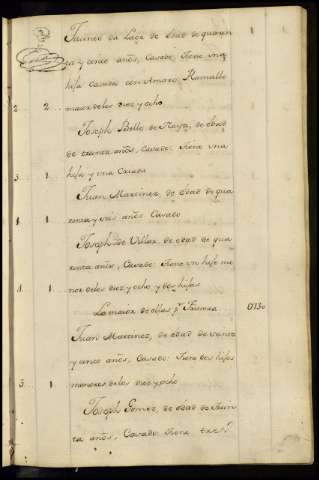 de la Laza de edad de quaren
ta y cinco años, Casado: tiene una
hija casada con Amaro Ramallo
2 2 menor de los diez y ocho
Joseph Bello de Raxo, de edad
de treinta años, Casado: tiene una
3 1 hija y una Criada
Juan Martinez, de edad de qua
1 1 renta y seis años Casado
Joseph de Villar de edad de qua
renta años, Casado: tiene un hijo me
4 1 nor de los diez y ocho y dos hijas
de ellas
Juan Martinez, de edad de
y cinco años, Casado: tiene dos hijos
3 1 menores de los diez y ocho
Joseph Gomez, de edad de trein
ta años, Casado: tiene tres